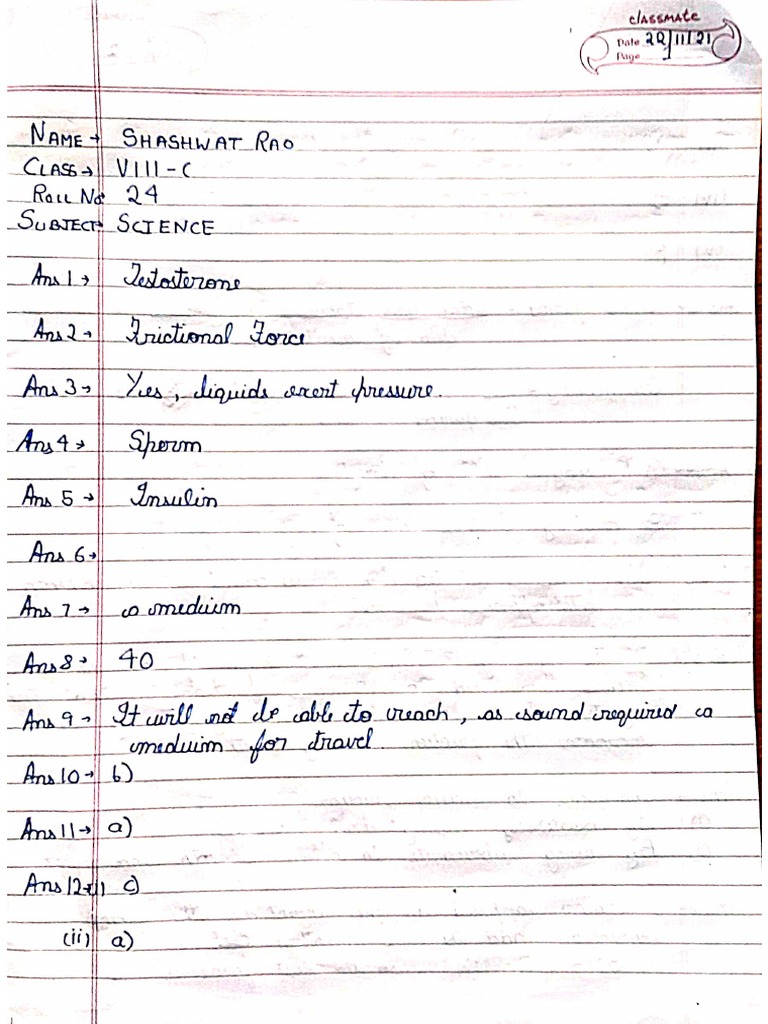 classmate
Date 22/11/21
Page
NAME → SHASHWAT RAO
CLASS → VIII-C
ROLL No 24
SUBJECT → SCIENCE
Ans 1 → Testosterone
Ans 2 → Frictional Force
Ans 3 → Yes, liquids exert pressure.
Ans 4 → Sperm
Ans 5 → Insulin
Ans 6 →
Ans 7 → a meduim
Ans 8 → 40
Ans 9 → It will not be able to reach, as sound required a
meduim for travel.
Ans 10 → b)
Ans 11 → a)
Ans 12 → i) c)
(ii) a)